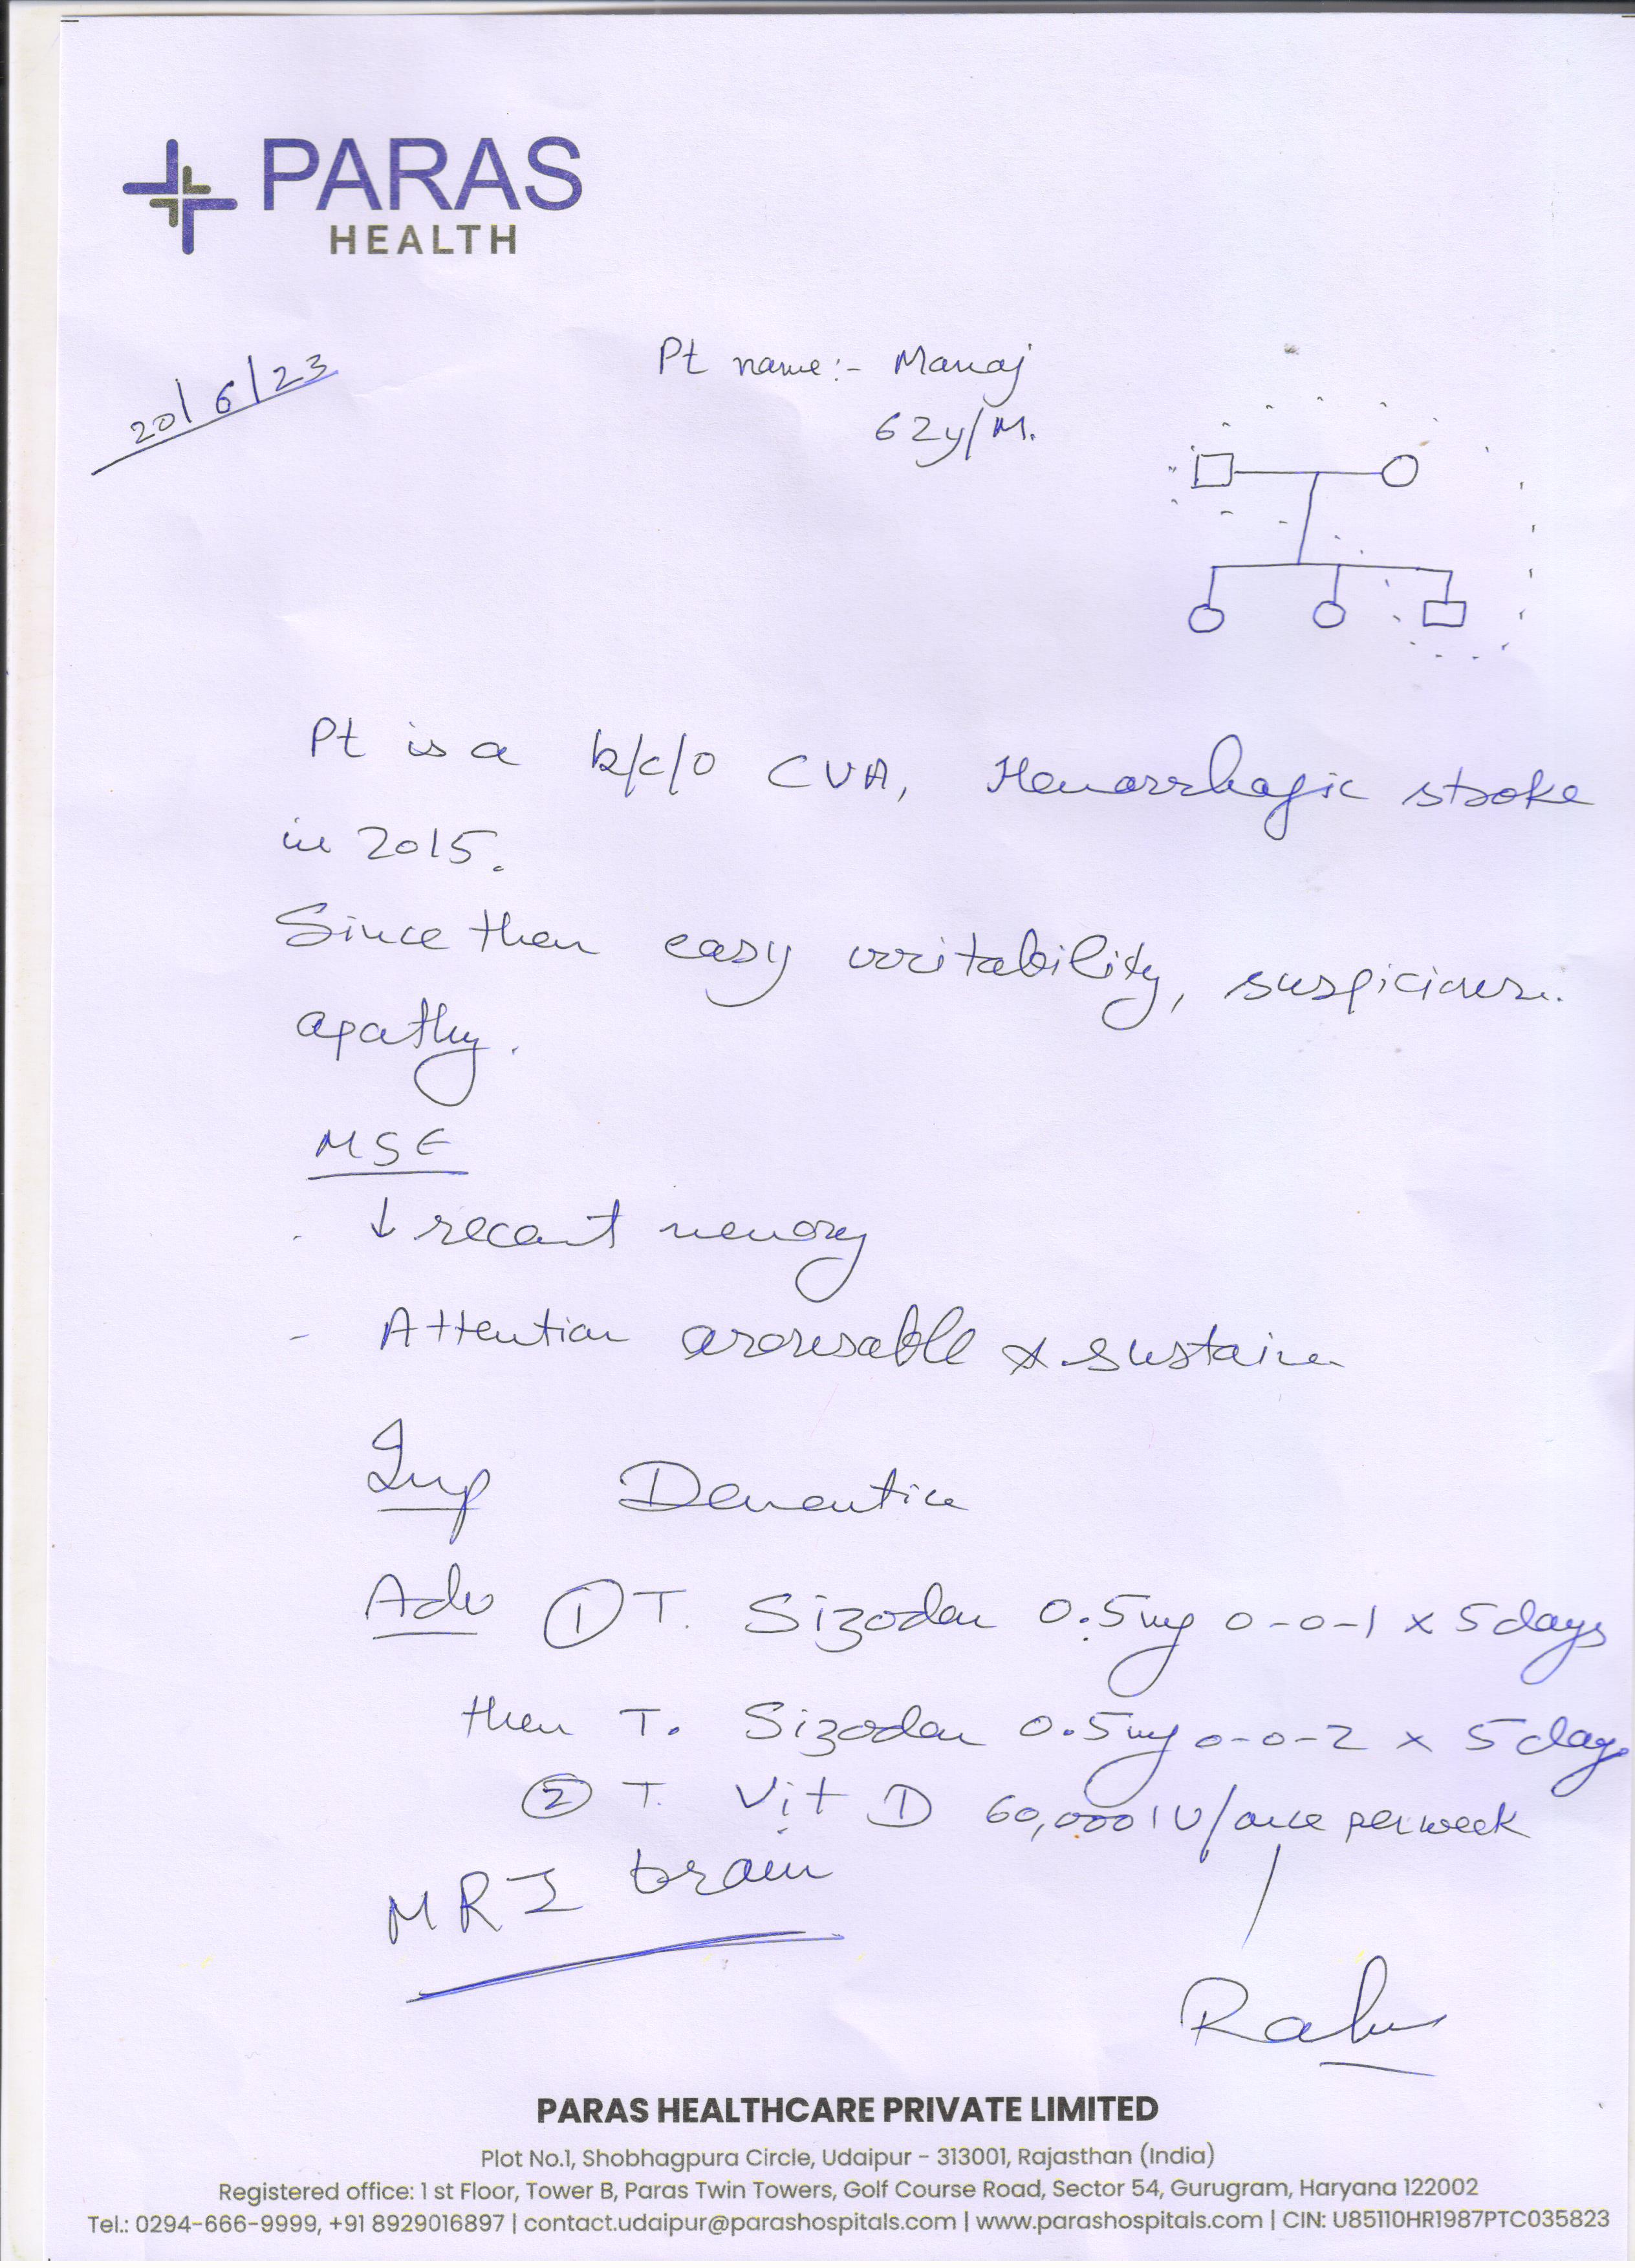 PARAS
HEALTH
20/6/23
Pt name:- Manoj
62y/M.
Pt is a k/c/o CVA, Hemorrhagic stroke
in 2015.
Since then easy irritability,
apathy.
MSE
. ↓ recent memory
- Attention arousable & sustain
Imp Dementia
Adv ① T. Sizodon 0.5mg 0-0-1 x 5 days
then T. Sizodon 0.5mg 0-0-2 x 5 days
② T. Vit D 60,000 IU/once per week
MRI brain
PARAS HEALTHCARE PRIVATE LIMITED
Plot No.1, Shobhagpura Circle, Udaipur - 313001, Rajasthan (India)
Registered office: 1 st Floor, Tower B, Paras Twin Towers, Golf Course Road, Sector 54, Gurugram, Haryana 122002
Tel.: 0294-666-9999, +91 8929016897 | contact.udaipur@parashospitals.com | www.parashospitals.com | CIN: U85110HR1987PTC035823